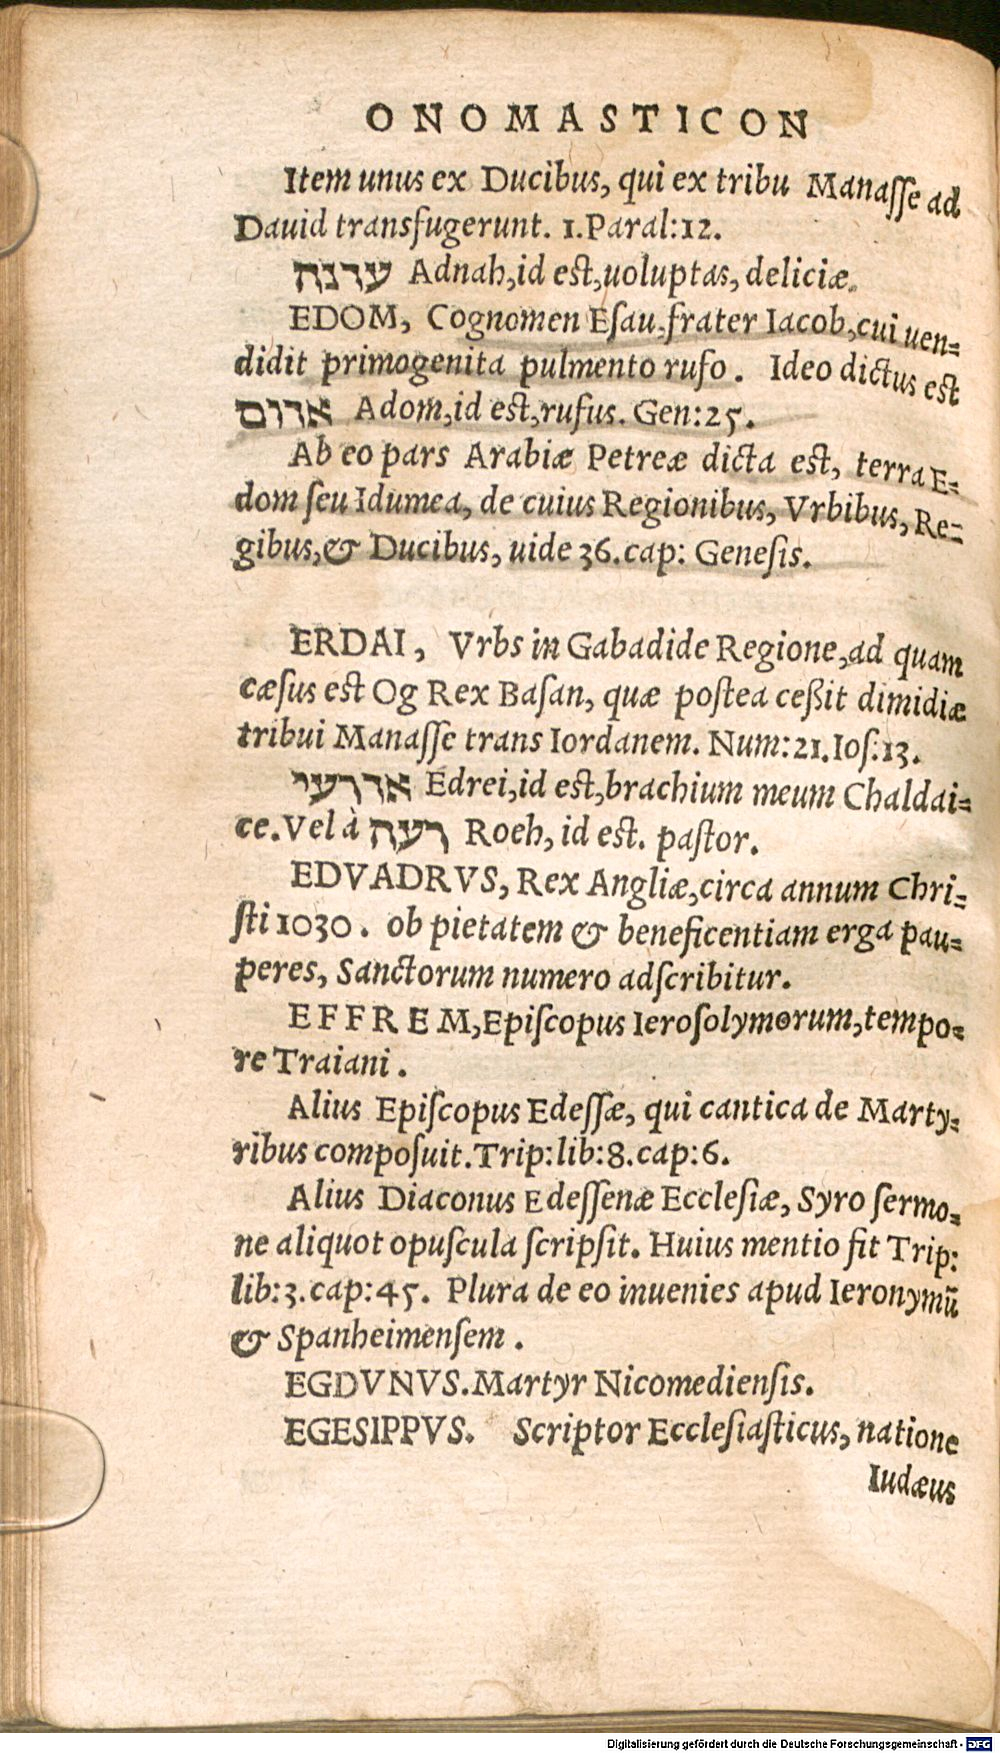 ONOMASTICON
Item unus ex Ducibus, qui ex tribu Manaſſe ad
Dauid transfugerunt. 1.Paral:12.
ערנה Adnah,id est,uoluptas, deliciæ.
EDOM, Cognomen Eſau,frater Iacob,cui uen-
didit primogenita pulmento rufo. Ideo dictus est
ארום Adom,id est,rufus. Gen:25.
Ab eo pars Arabiæ Petreæ dicta est, terra E-
dom ſeu Idumea, de cuius Regionibus, Vrbibus, Re-
gibus,& Ducibus, uide 36.cap: Geneſis.
ERDAI, Vrbs in Gabadide Regione,ad quam
cæſus est Og Rex Baſan, quæ poſtea ceßit dimidiæ
tribui Manaſſe trans Iordanem. Num:21.Ioſ:13.
אררעי Edrei,id est,brachium meum Chaldai-
ce.Vel à רעה Roeh, id est. paſtor.
EDVADRVS, Rex Angliæ,circa annum Chri-
ſti 1030. ob pietatem & beneficentiam erga pau-
peres, Sanctorum numero adſcribitur.
EFFREM,Epiſcopus Ieroſolymorum,tempo-
re Traiani.
Alius Epiſcopus Edeſſæ, qui cantica de Marty-
ribus compoſuit.Trip:lib:8.cap:6.
Alius Diaconus Edeſſenæ Eccleſiæ, Syro ſermo-
ne aliquot opuſcula ſcripſit. Huius mentio fit Trip:
lib:3.cap:45. Plura de eo inuenies apud Ieronymū
& Spanheimenſem.
EGDVNVS.Martyr Nicomedienſis.
EGESIPPVS. Scriptor Eccleſiaſticus, natione
Iudæus
Digitalisierung gefördert durch die Deutsche Forschungsgemeinschaft - DFG